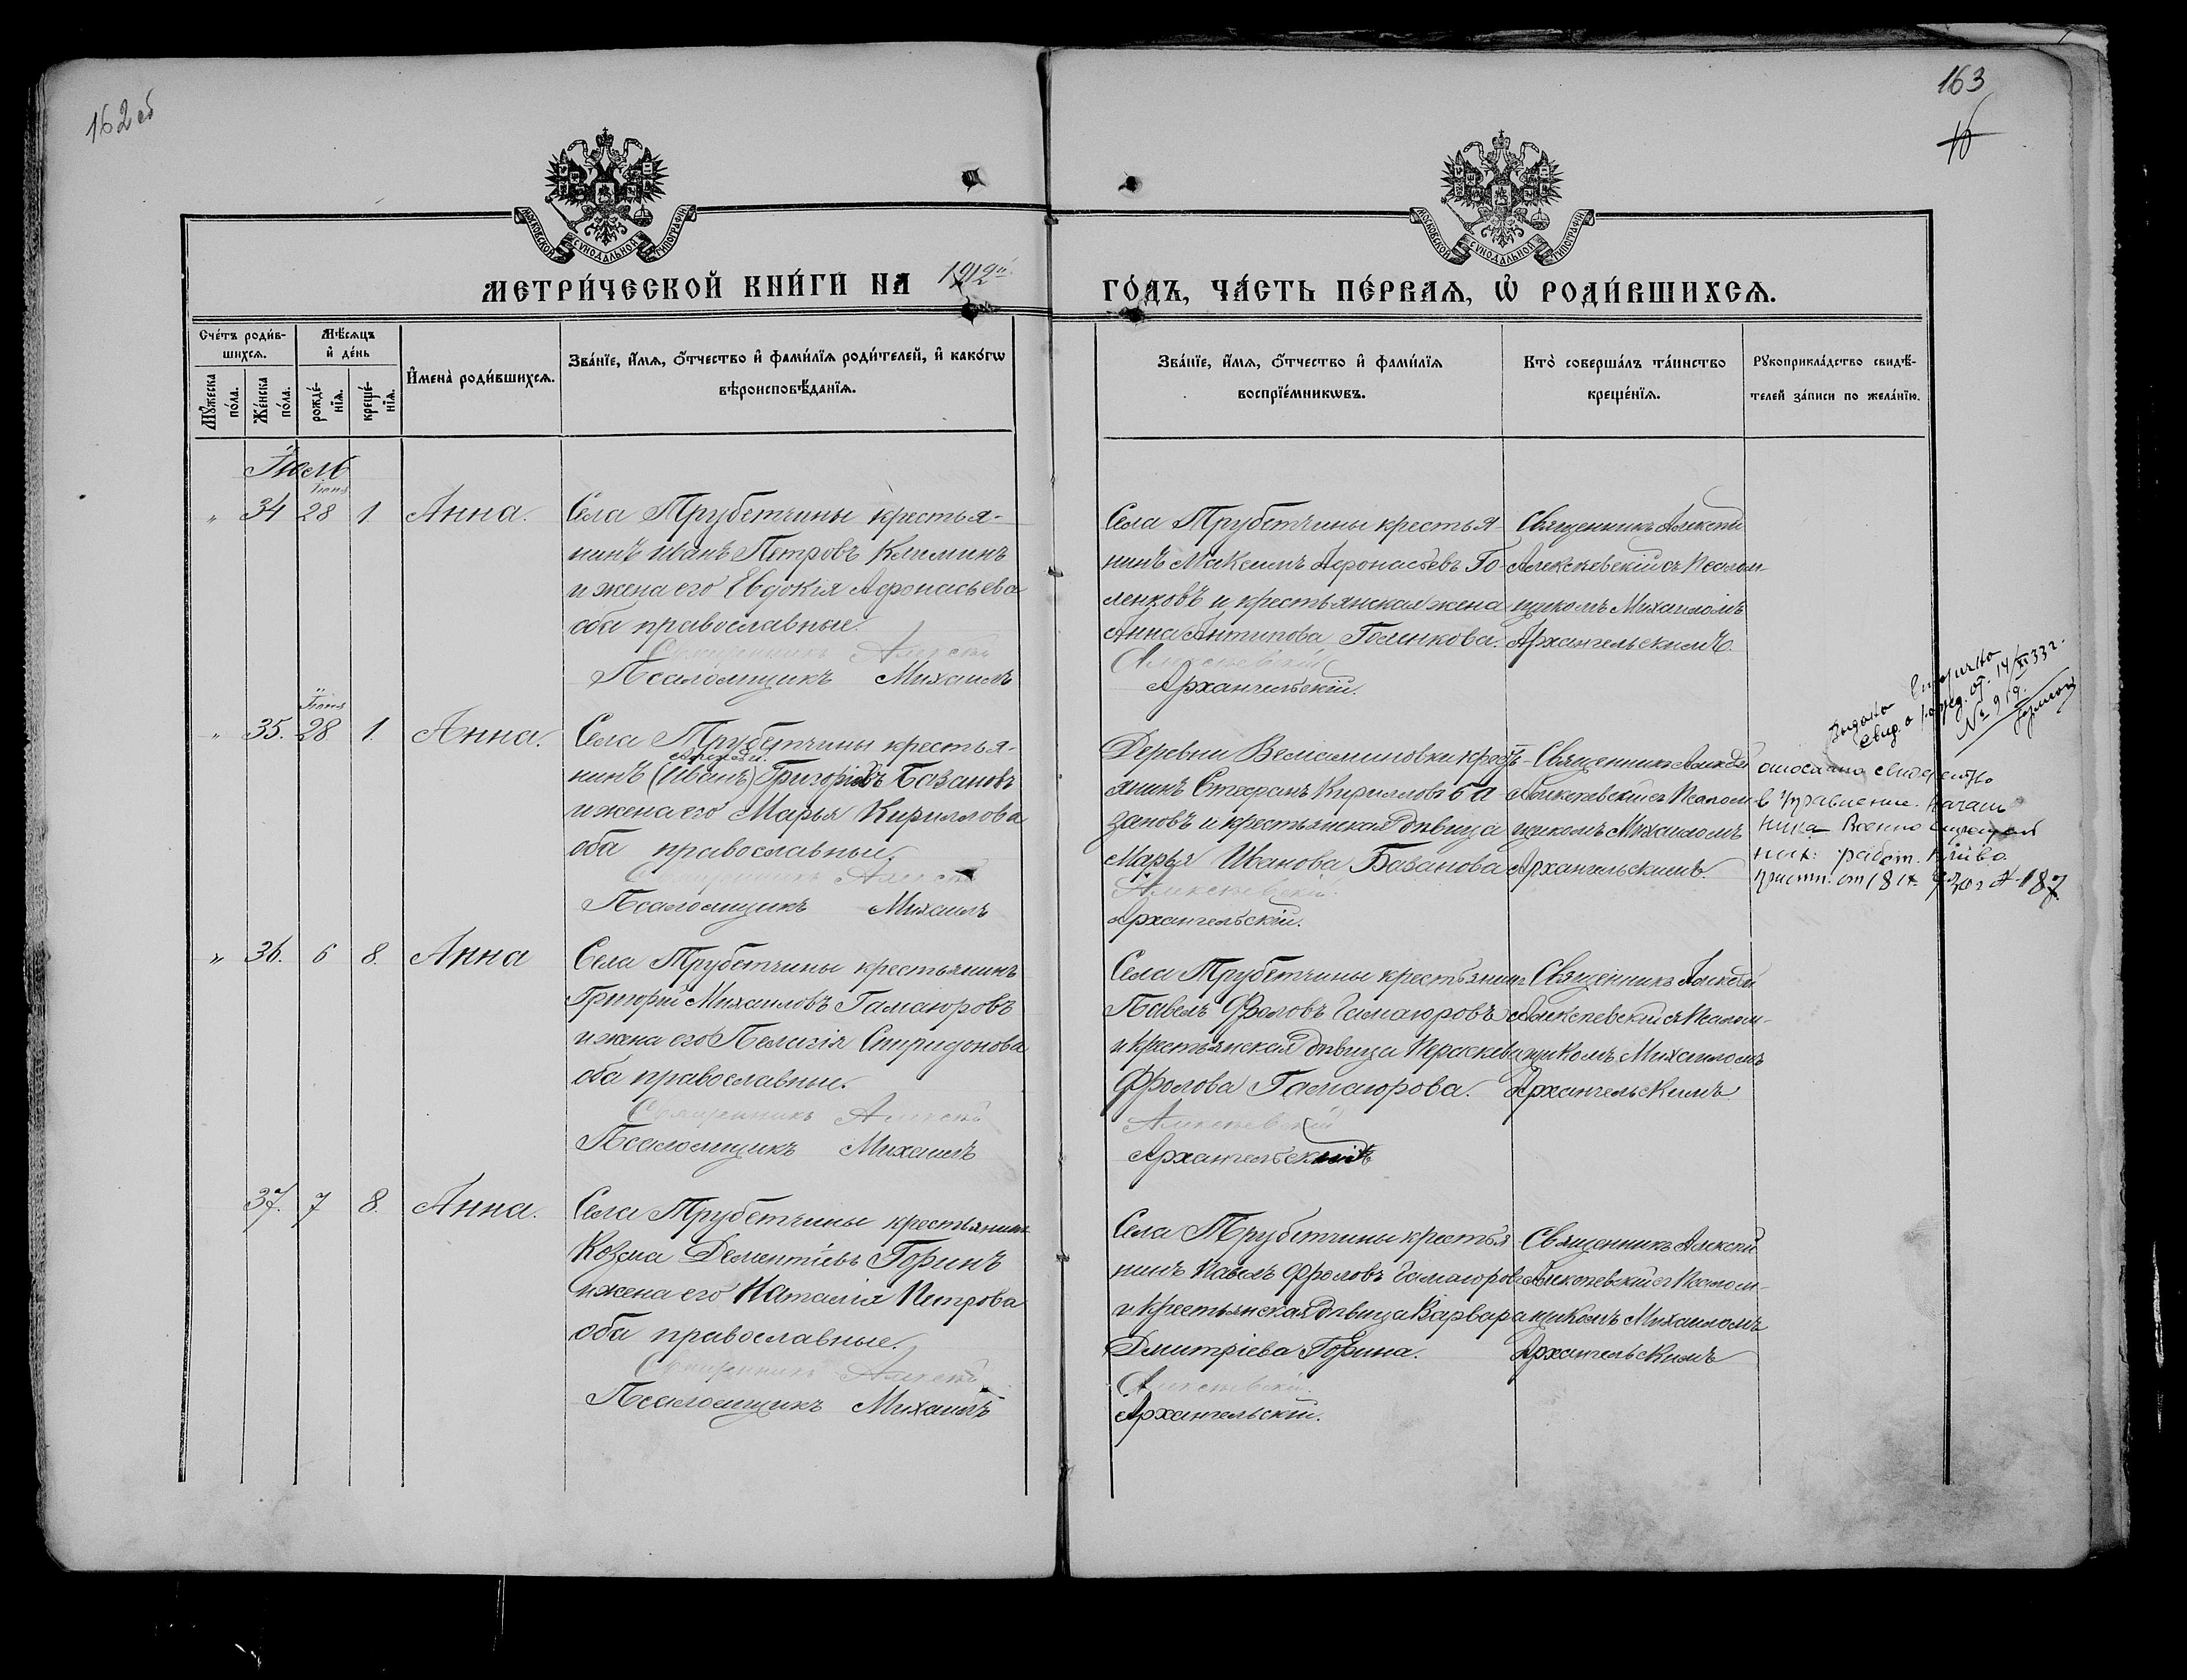 162 об
163
16
МОСКОВСКОЙ СѴНОДАЛЬНОЙ ТИПОГРАФІИ
МОСКОВСКОЙ СѴНОДАЛЬНОЙ ТИПОГРАФІИ
МЕТРИ́ЧЕСКОЙ КНИ́ГИ НА 1912й
ГО́ДЪ, ЧА́СТЬ ПЕ́РВАѦ, Ѽ РОДИ́ВШИХСѦ.
Сче́тъ роди́в-
шихсѧ.
Мꙋ́жеска
по́ла.
Же́нска
по́ла.
Мѣ́сѧцъ
и҆ де́нь
рожде́-
нїѧ.
креще́-
нїѧ.
И҆мена̀ роди́вшихсѧ.
Зва́нїе, и҆́мѧ, ѻ҆́тчество и҆ фами́лїѧ роди́телей, и҆ како́гѡ
вѣроисповѣ́данїѧ.
Зва́нїе, и҆́мѧ, ѻ҆́тчество и҆ фами́лїѧ
воспрїе́мникѡвъ.
Кто̀ соверша́лъ та́инство
креще́нїѧ.
Рꙋкоприкла́дство свидѣ́-
телей за́писи по жела́нїю.
Іюль
" 34 Іюня 28 1. Анна.
Села Трубетчины крестья-
нинъ Иванъ Петровъ Климинъ
и жена его Евдокія Афонасьева
оба православные.
Священникъ Алексѣй
Псаломщикъ Михаилъ
Села Трубетчины крестья-
нинъ Максимъ Афонасьевъ Го-
ленковъ и крестьянская жена
Анна Антипова Голенкова.
Алексѣевскій
Архангельскій.
Священникъ Алексѣй
Алексѣевскій съ Псалом-
щикомъ Михаиломъ
Архангельскимъ.
" 35. Іюня 28 1. Анна.
Села Трубетчины крестья-
нинъ (Иванъ) Григорьевъ Базановъ
и жена его Марья Кириллова
оба православные.
Священникъ Алексѣй
Псаломщикъ Михаилъ
Деревни Вельяминовки крест-
янинъ Стефанъ Кирилловъ Ба-
зановъ и крестьянская дѣвица
Марья Иванова Базанова
Алексѣевскій.
Архангельскій.
Священникъ Алексѣй
Алексѣевскій съ Псалом-
щикомъ Михаиломъ
Архангельскимъ.
Выдано вторично
свид. о рожд. от. 14/XI 33 г.
№ 919.
в управление. начал
" 36. 6 8. Анна
Села Трубетчины крестьянинъ
Григорій Михаиловъ Гамаюровъ
и жена его Пелагія Спиридонова
оба православные.
Священникъ Алексѣй
Псаломщикъ Михаилъ
Села Трубетчины крестьянинъ
Павелъ Фроловъ Гамаюровъ
и крестьянская дѣвица Пераскева
Фролова Гамаюрова.
Алексѣевскій
Архангельскій
Священникъ Алексѣй
Алексѣевскій съ Псалом-
щикомъ Михаиломъ
Архангельскимъ
37. 7 8. Анна.
Села Трубетчины крестьянинъ
Козма Дементіевъ Горинъ
и жена его Наталія Петрова
оба православные.
Священникъ Алексѣй
Псаломщикъ Михаилъ
Села Трубетчины крестья-
нинъ Павелъ Фроловъ Гамаюровъ
и крестьянская дѣвица Варвара
Дмитріева Горина.
Алексѣевскій.
Архангельскій.
Священникъ Алексѣй
Алексѣевскій съ Псалом-
щикомъ Михаиломъ
Архангельскимъ